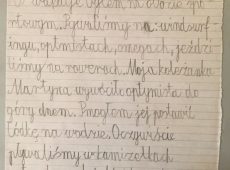 wakacje byłem w obozie spo
rtowym. Pływaliśmy na: windsurf-
ingu, optimistach, omegach, jeździ
liśmy na rowerach. Moja koleżanka
Martyna wywróciła optymista do
góry dnem. Pomogłem jej postawić
łódkę na wodzie. Oczywiście
pływaliśmy w kamizelkach